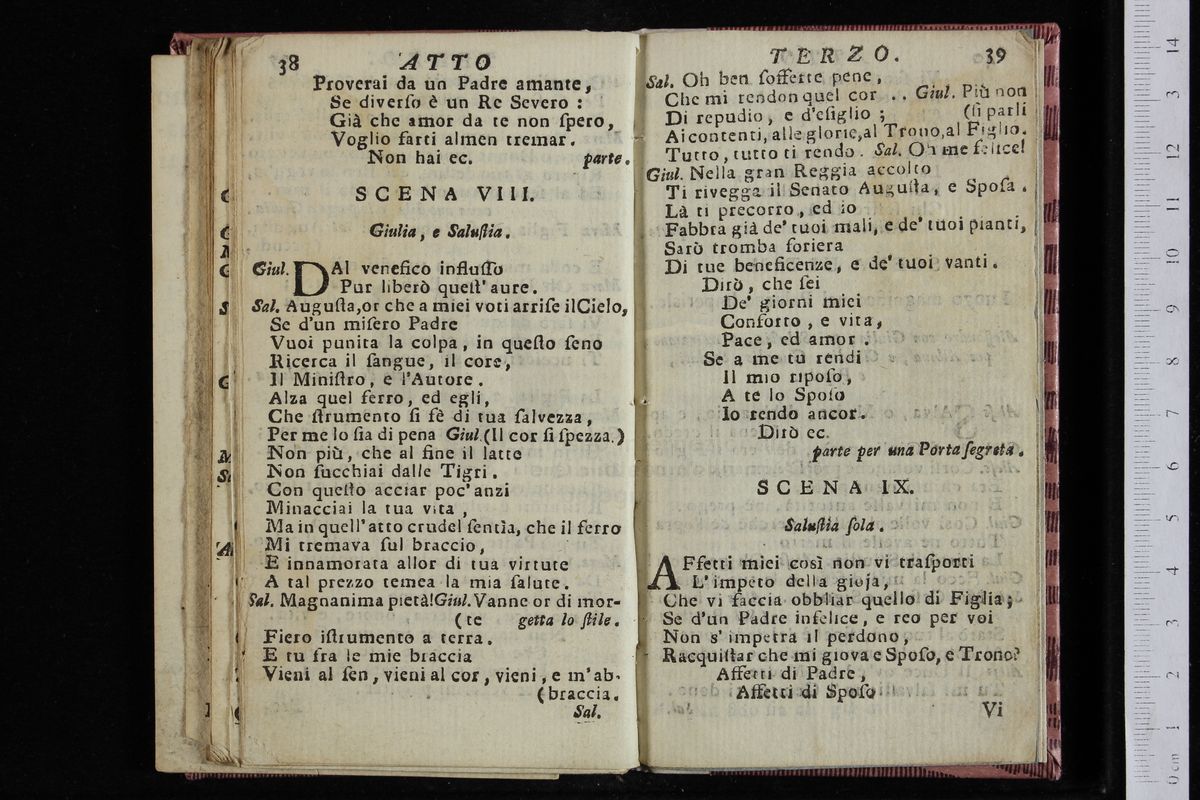 38 ATTO
Proverai da un Padre amante,
Se diverſo è un Re Severo :
Già che amor da te non ſpero,
Voglio farti almen tremar.
Non hai ec. parte.
SCENA VIII.
Giulia, e Saluſtia.
Giul. DAl venefico influſſo
Pur liberò queſt' aure.
Sal. Auguſta, or che a miei voti arriſe il Cielo,
Se d'un miſero Padre
Vuoi punita la colpa, in queſto ſeno
Ricerca il ſangue, il core,
Il Miniſtro, e l'Autore.
Alza quel ferro, ed egli,
Che ſtrumento ſi fè di tua ſalvezza,
Per me lo ſia di pena Giul. (Il cor ſi ſpezza.)
Non più, che al fine il latte
Non ſucchiai dalle Tigri.
Con queſto acciar poc' anzi
Minacciai la tua vita,
Ma in quell' atto crudel ſentìa, che il ferro
Mi tremava ſul braccio,
E innamorata allor di tua virtute
A tal prezzo temea la mia ſalute.
Sal. Magnanima pietà! Giul. Vanne or di mor-
(te getta lo ſtile.
Fiero iſtrumento a terra.
E tu fra le mie braccia
Vieni al ſen, vieni al cor, vieni, e m'ab-
(braccia.
Sal.
TERZO. 39
Sal. Oh ben ſofferte pene,
Che mi rendon quel cor .. Giul. Più non
Di repudio, e d'eſiglio ; (ſi parli
Ai contenti, alle glorie, al Trono, al Figlio.
Tutto, tutto ti rendo. Sal. Oh me felice!
Giul. Nella gran Reggia accolto
Ti rivegga il Senato Auguſta, e Spoſa.
Là ti precorro, ed io
Fabbra già de' tuoi mali, e de' tuoi pianti,
Sarò tromba foriera
Di tue beneficenze, e de' tuoi vanti.
Dirò, che ſei
De' giorni miei
Conforto, e vita,
Pace, ed amor.
Se a me tu rendi
Il mio ripoſo,
A te lo Spoſo
Io rendo ancor.
Dirò ec.
parte per una Porta ſegreta.
SCENA IX.
Saluſtia ſola.
AFfetti miei così non vi traſporti
L' impeto della gioja,
Che vi faccia obbliar quello di Figlia;
Se d'un Padre infelice, e reo per voi
Non s' impetra il perdono,
Racquiſtar che mi giova e Spoſo, e Trono?
Affetti di Padre,
Affetti di Spoſo
Vi